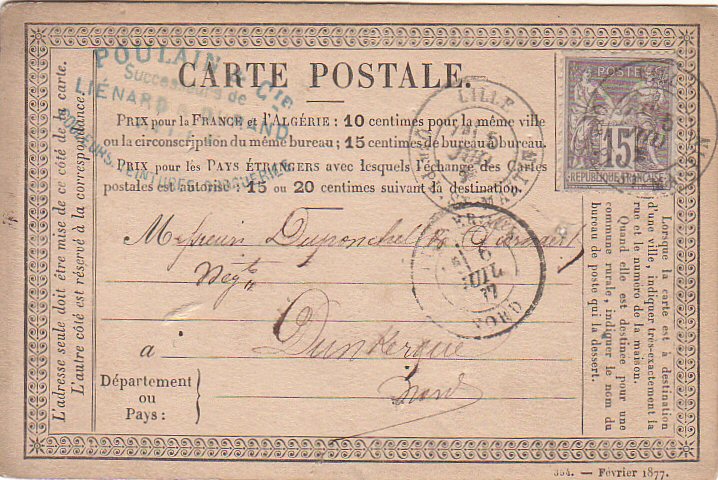 CARTE POSTALE.
POULAIN & Cie
Successeurs de
LIÉNARD
PRIX pour la FRANCE et l'ALGÉRIE: 10 centimes pour la même ville
ou la circonscription du même bureau; 15 centimes de bureau à bureau.
PRIX pour les PAYS ÉTRANGERS avec lesquels l'échange des Cartes
postales est autorisé: 15 ou 20 centimes suivant la destination.
LILLE
5
MATIN
POSTE
15
REPUBLIQUE FRANÇAISE
6
JUIL
77
NORD
Messieurs Duponchel &
Négts
à Dunkerque
Département
ou
Pays:
Nord
L'adresse seule doit être mise de ce côté de la carte.
L'autre côté est réservé à la correspondance.
Lorsque la carte est à destination
d'une ville, indiquer très-exactement la
rue et le numéro de la maison.
Quand elle est destinée pour une
commune rurale, indiquer le nom du
bureau de poste qui la dessert.
354. — Février 1877.